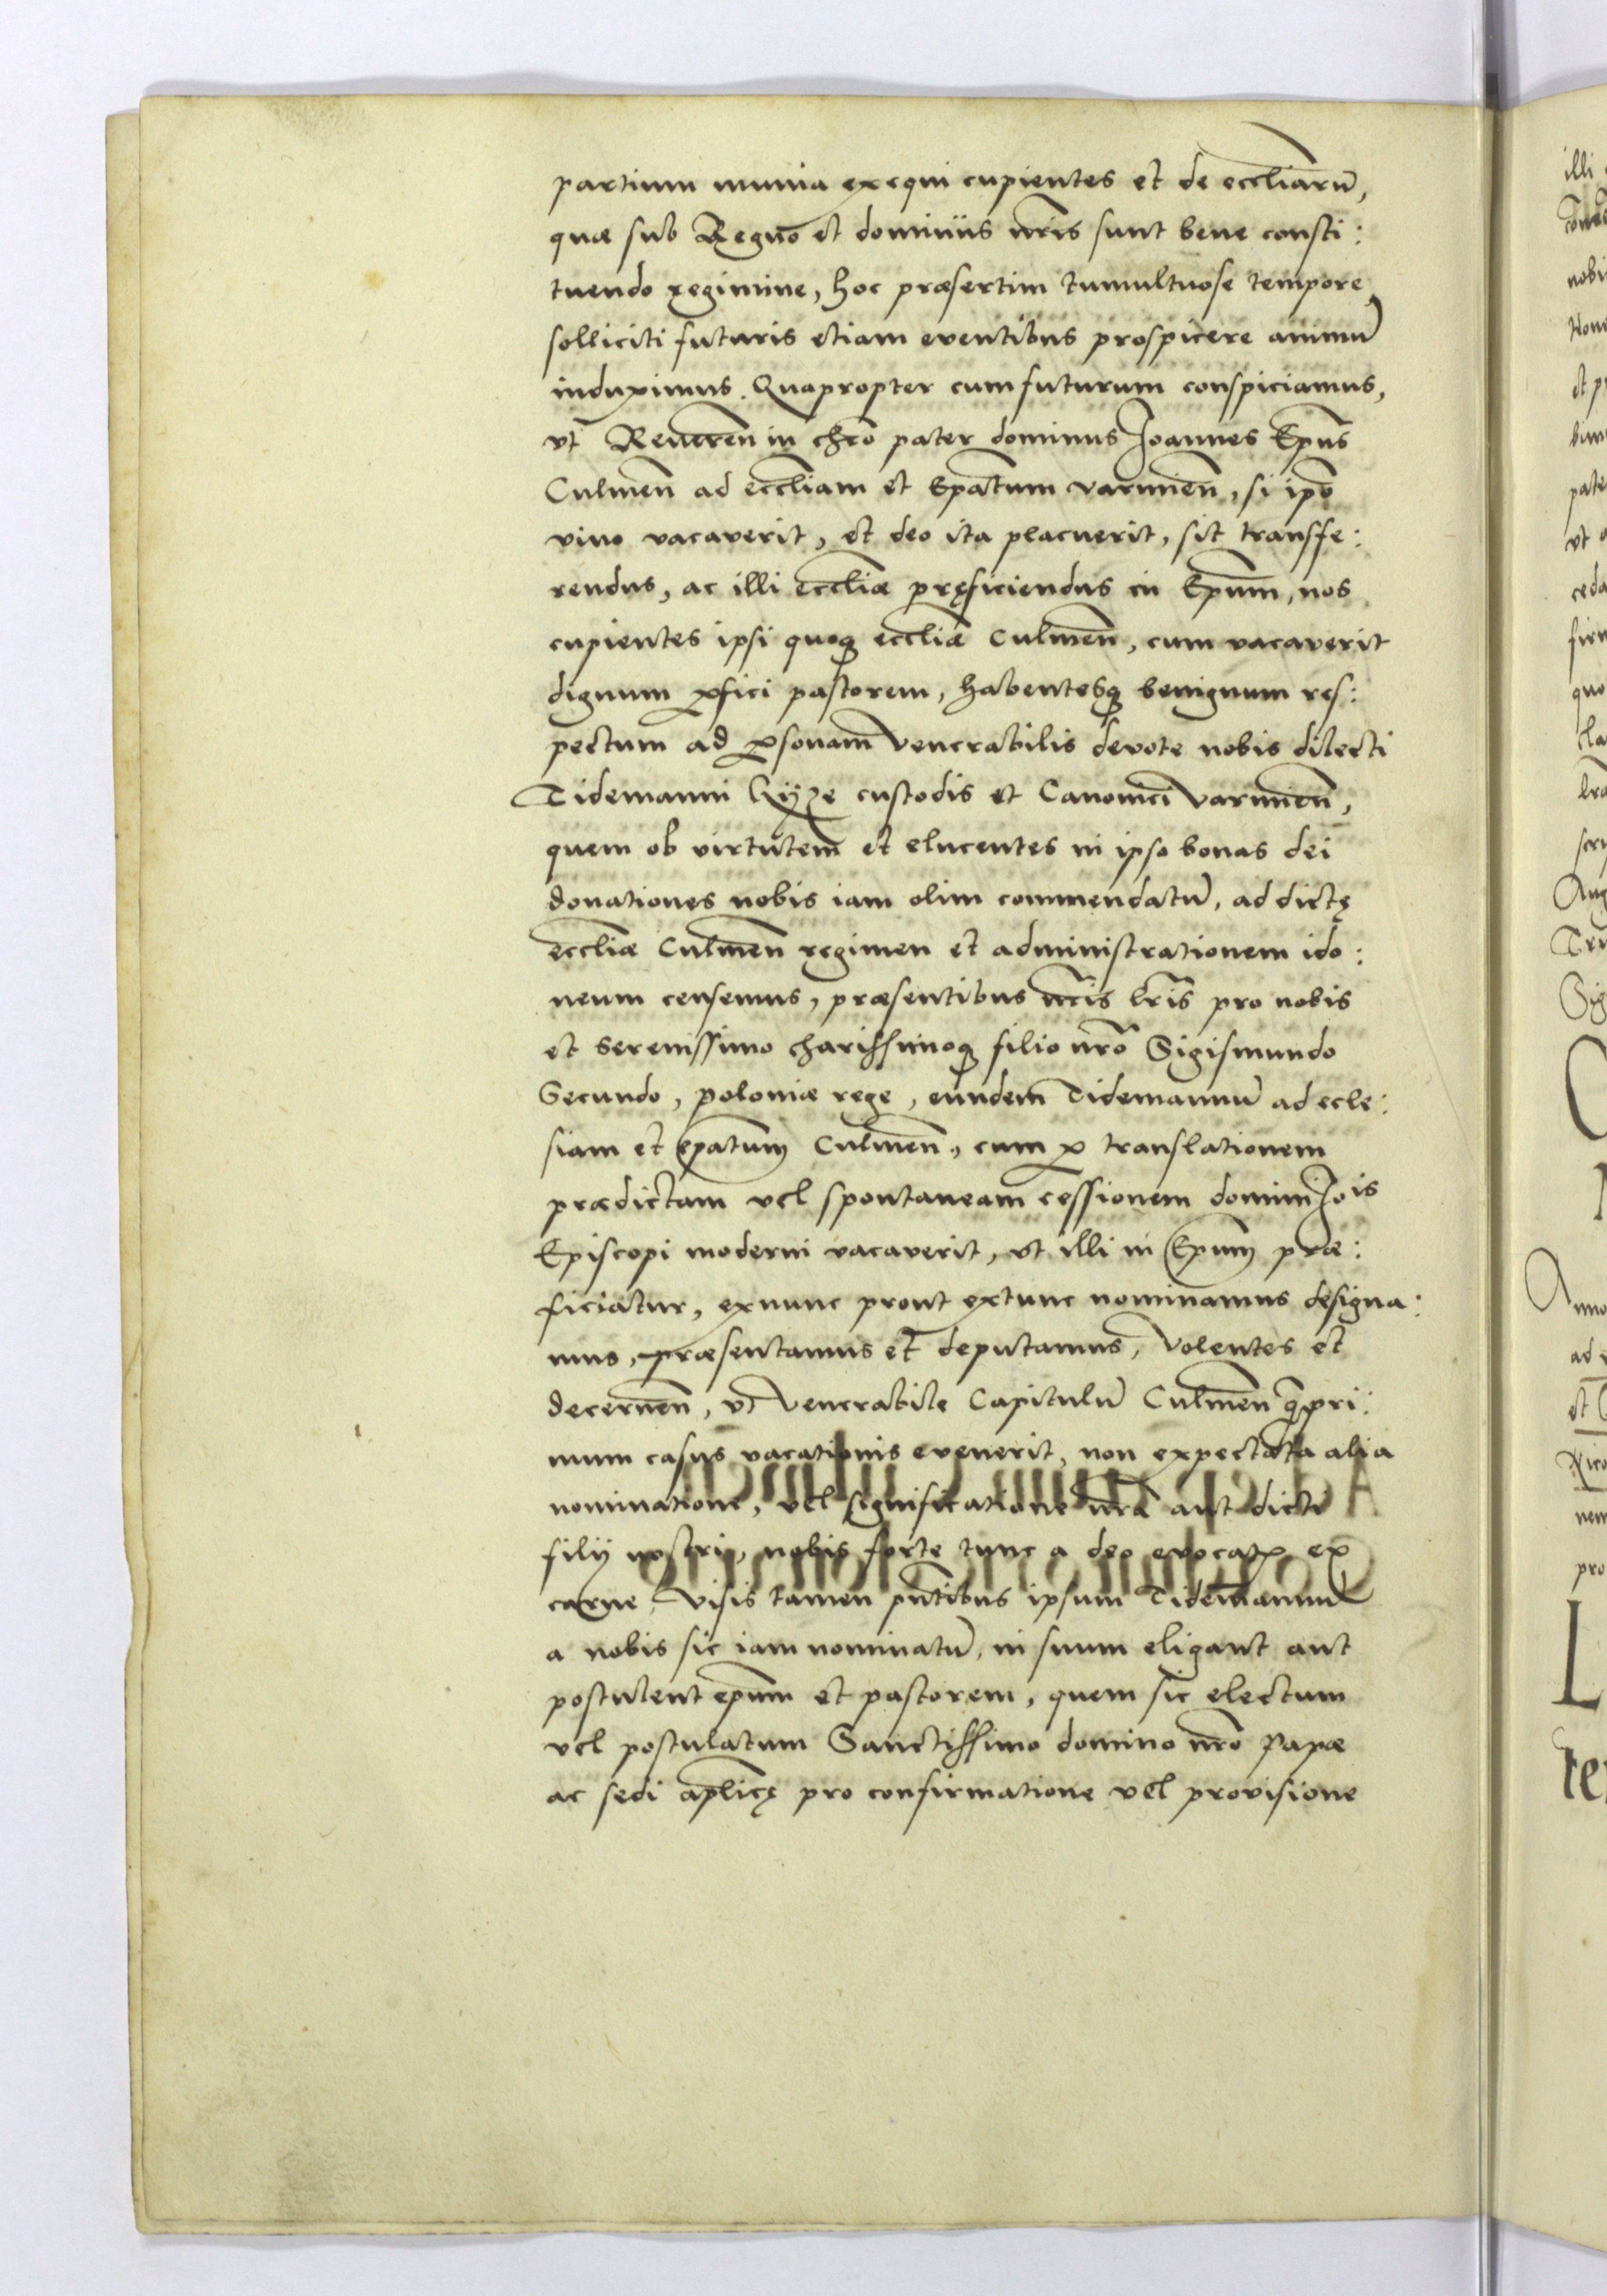 partium munia exequi cupientes et de eccliarũ,
quæ sub Regno et dominiis nr̃is sunt bene consti:
tuendo regimine, hoc præsertim tumultuose tempore,
solliciti futuris etiam eventibus prospicere animũ
induximus. Quapropter cum futurum conspiciamus,
vt Reueren̄ in chr̃o pater dominus Joannes Ep̃us
Culmen̄ ad eccl̃iam et Ep̃atum varmien̄, si ip̃o
viuo vacaverit, et deo ita placuerit, sit transfe:
rendus, ac illi eccl̃iæ pręficiendus in Ep̃um, nos
cupientes ipsi quoq̃ eccl̃iæ Culmen̄, cum vacaverit
dignum p̃fici pastorem, habentesq̃ benignum res:
pectum ad p̱sonam Venerabilis devote nobis dilecti
Tidemanni Gyze custodis et Canonici varmien̄,
quem ob virtutem et elucentes in ipso bonas dei
donationes nobis iam olim commendatũ, ad dictę
eccl̃iæ Culmen̄ regimen et administrationem ido:
neum censemus, præsentibus nr̃is lr̃is pro nobis
et serenissimo charissimoq̃ filio nr̃o Sigismundo
Secundo, poloniæ rege, eundem Tidemannũ ad ecle:
siam et ep̃atum Culmen̄, cum p̱ translationem
prædictam vel spontaneam cessionem domini Jo is
Episcopi moderni vacaverit, vt illi in Ep̃um præ:
ficiatur, exnunc prout extunc nominamus designa:
mus, præsentamus et deputamus, Volentes et
decernen̄, vt Venerabile Capitulũ Culmen̄ q̃pri:
mum casus vacationis evenerit, non expectata alia
nominatione, vel significatione nr̃a aut dicti
filÿ nostri, nobis forte tunc a deo evocat̃ ex
carne, visis tamen pñtibus ipsum Tidemannũ
a nobis sic iam nominatũ, in suum eligant aut
postulent ep̃um et pastorem, quem sic electum
vel postulatum Sanctissimo domino nr̃o Papæ
ac sedi ap̃licę pro confirmatione vel provisione